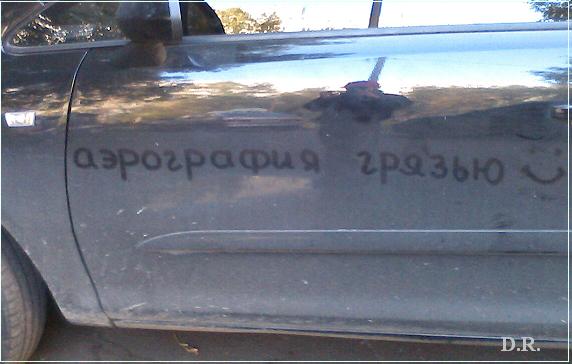 аэрография грязью
D.R.